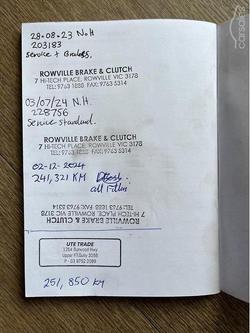 28.08.23 N.H
203183
Service + Brakes,
ROWVILLE BRAKE & CLUTCH
7 HI-TECH PLACE, ROWVILLE VIC 3178
TEL: 9763 1888 FAX: 9763 5314
03/07/24 N.H.
228756
Service standard.
ROWVILLE BRAKE & CLUTCH
7 HI-TECH PLACE, ROWVILLE VIC 3178
TEL: 9763 1888 FAX: 9763 5314
02-12-2024
241,321 KM
all Filters
TEL: 9763 1888 FAX: 9763 5314
7 HI-TECH PLACE, ROWVILLE VIC 3178
ROWVILLE BRAKE & CLUTCH
UTE TRADE
1254 Burwood Hwy
Upper FTGully 3156
P - 03 9752 2099
251,850 km
carsales